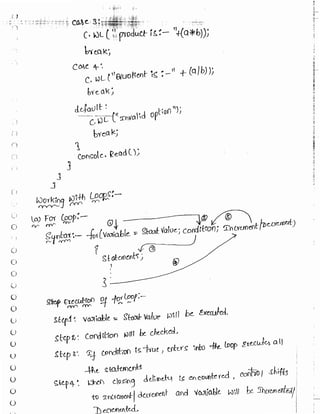 case 3:
C.WL("product is:-"+(a*b));
break;
case 4:
C.WL("Quotient is:-" + (a/b));
break;
default:
C.WL("Invalid option");
break;
}
Console.Read();
}
}
}
Working With Loops:-
(a) For Loop:-
① ② ⑤
Syntax:- for(Variable = Start Value; condition; Increment/Decrement)
{ ③
Statements;
④
}
Step Execution of for loop:-
Step1: variable = Start Value will be Executed.
Step2: Condition will be checked.
Step 3: If condition is 'true', enters into the loop executes all
the statements
Step4: When closing delimeter is encountered, control shifts
to Increment/decrement and variable will be Incremented/
Decremented.